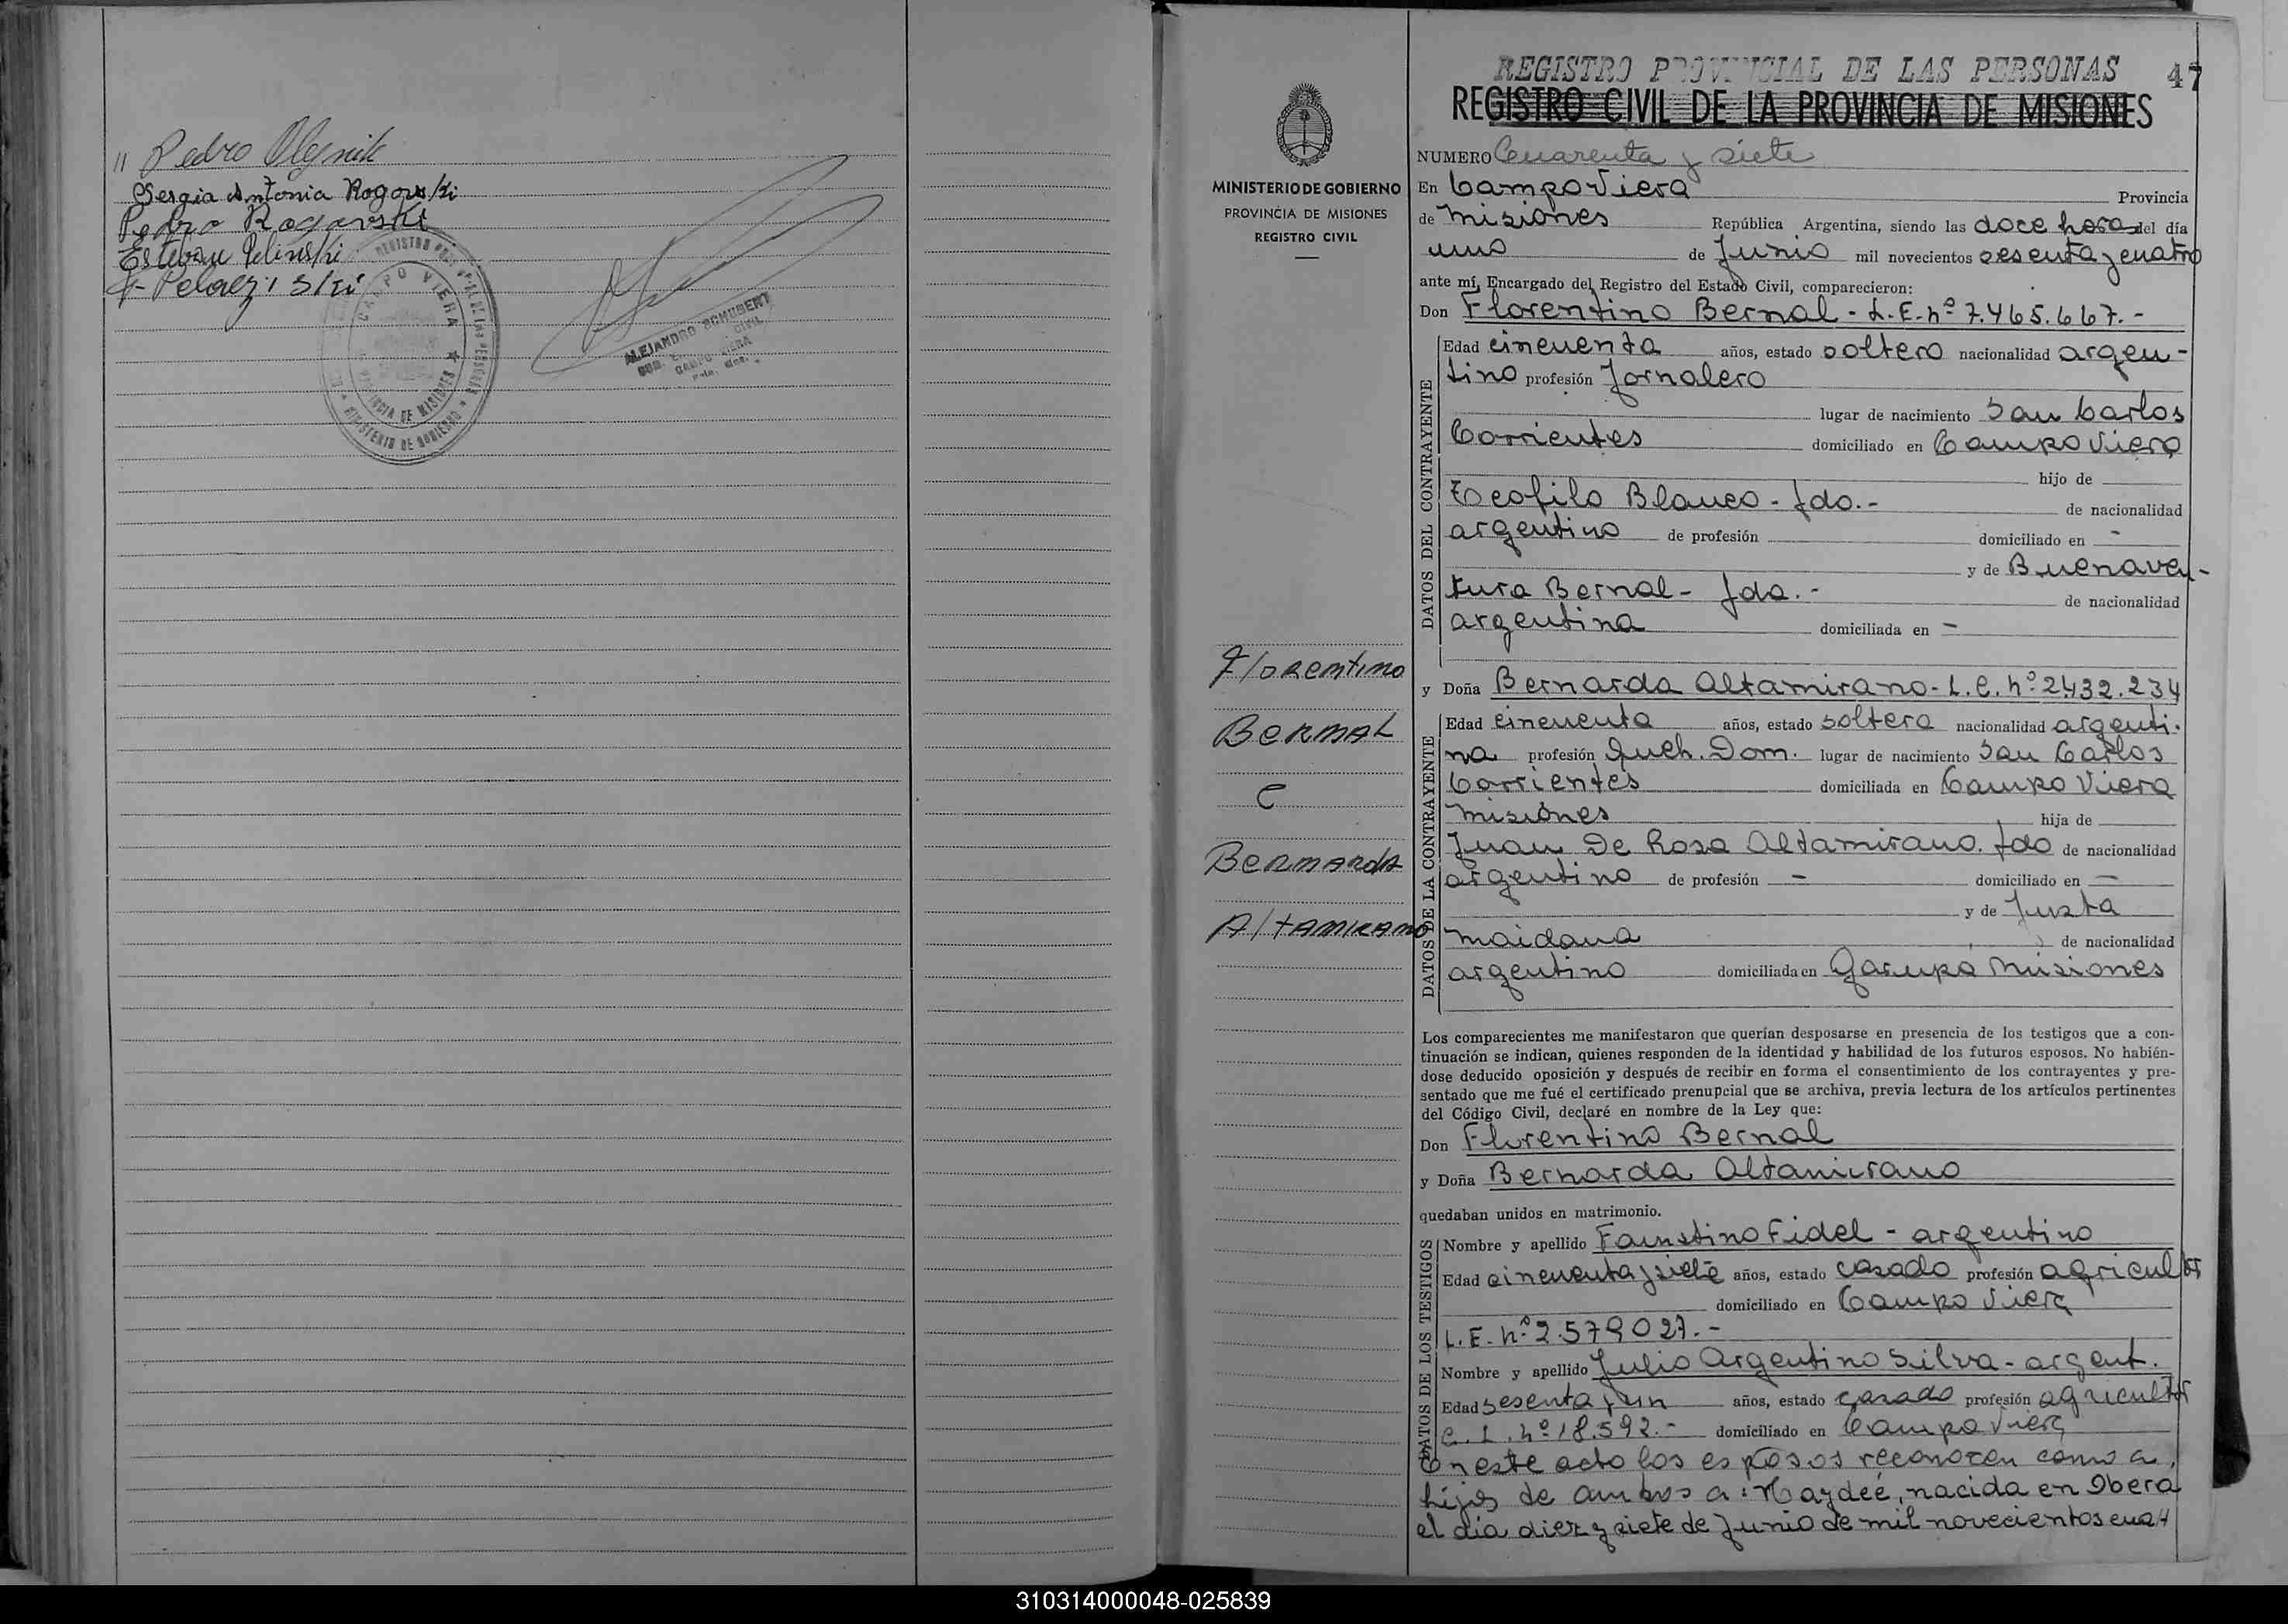 " Pedro Olejnik
Sergia Antonia Rogowski
Pedro Rogowski
Esteban Pelinski
ALEJANDRO SCHUBERT
CAMPO VIERA
PROVINCIA DE MISIONES
MINISTERIO DE GOBIERNO
REGISTRO PROVINCIAL DE LAS PERSONAS
47
REGISTRO CIVIL DE LA PROVINCIA DE MISIONES
MINISTERIO DE GOBIERNO
PROVINCIA DE MISIONES
REGISTRO CIVIL
Florentino
Bernal
e
Bernarda
Altamirano
NUMERO Cuarenta y siete
En Campo Viera Provincia
de Misiones República Argentina, siendo las doce horas del día
uno de Junio mil novecientos sesenta y cuatro
ante mí, Encargado del Registro del Estado Civil, comparecieron:
Don Florentino Bernal - L.E. nº 7.465.667.-
DATOS DEL CONTRAYENTE
Edad cincuenta años, estado soltero nacionalidad argen-
tino profesión Jornalero
lugar de nacimiento San Carlos
Corrientes domiciliado en Campo Viera
hijo de
Teofilo Blanco - fdo.- de nacionalidad
argentino de profesión domiciliado en -
y de Buenaven-
tura Bernal - fda.- de nacionalidad
argentina domiciliada en -
y Doña Bernarda Altamirano - L.C. nº 2432.234
DATOS DE LA CONTRAYENTE
Edad cincuenta años, estado soltera nacionalidad argenti-
na profesión Queh. Dom. lugar de nacimiento San Carlos
Corrientes domiciliada en Campo Viera
Misiones hija de
Juan De Rosa Altamirano. fdo de nacionalidad
argentino de profesión - domiciliado en -
y de Justa
Maidana de nacionalidad
argentino domiciliada en Garupa Misiones
Los comparecientes me manifestaron que querían desposarse en presencia de los testigos que a con-
tinuación se indican, quienes responden de la identidad y habilidad de los futuros esposos. No habién-
dose deducido oposición y después de recibir en forma el consentimiento de los contrayentes y pre-
sentado que me fué el certificado prenupcial que se archiva, previa lectura de los artículos pertinentes
del Código Civil, declaré en nombre de la Ley que:
Don Florentino Bernal
y Doña Bernarda Altamirano
quedaban unidos en matrimonio.
DATOS DE LOS TESTIGOS
Nombre y apellido Faustino Fidel - argentino
Edad cincuenta y siete años, estado casado profesión agricultor
domiciliado en Campo Viera
L.E. nº 2.579027.-
Nombre y apellido Julio Argentino Silva - argent.
Edad sesenta y un años, estado casado profesión agricultor
C.I. nº 18.592.- domiciliado en Campo Viera
En este acto los esposos reconocen como a
hijos de ambos a: Haydeé, nacida en Obera
el día diez y siete de Junio de mil novecientos cua//
310314000048-025839